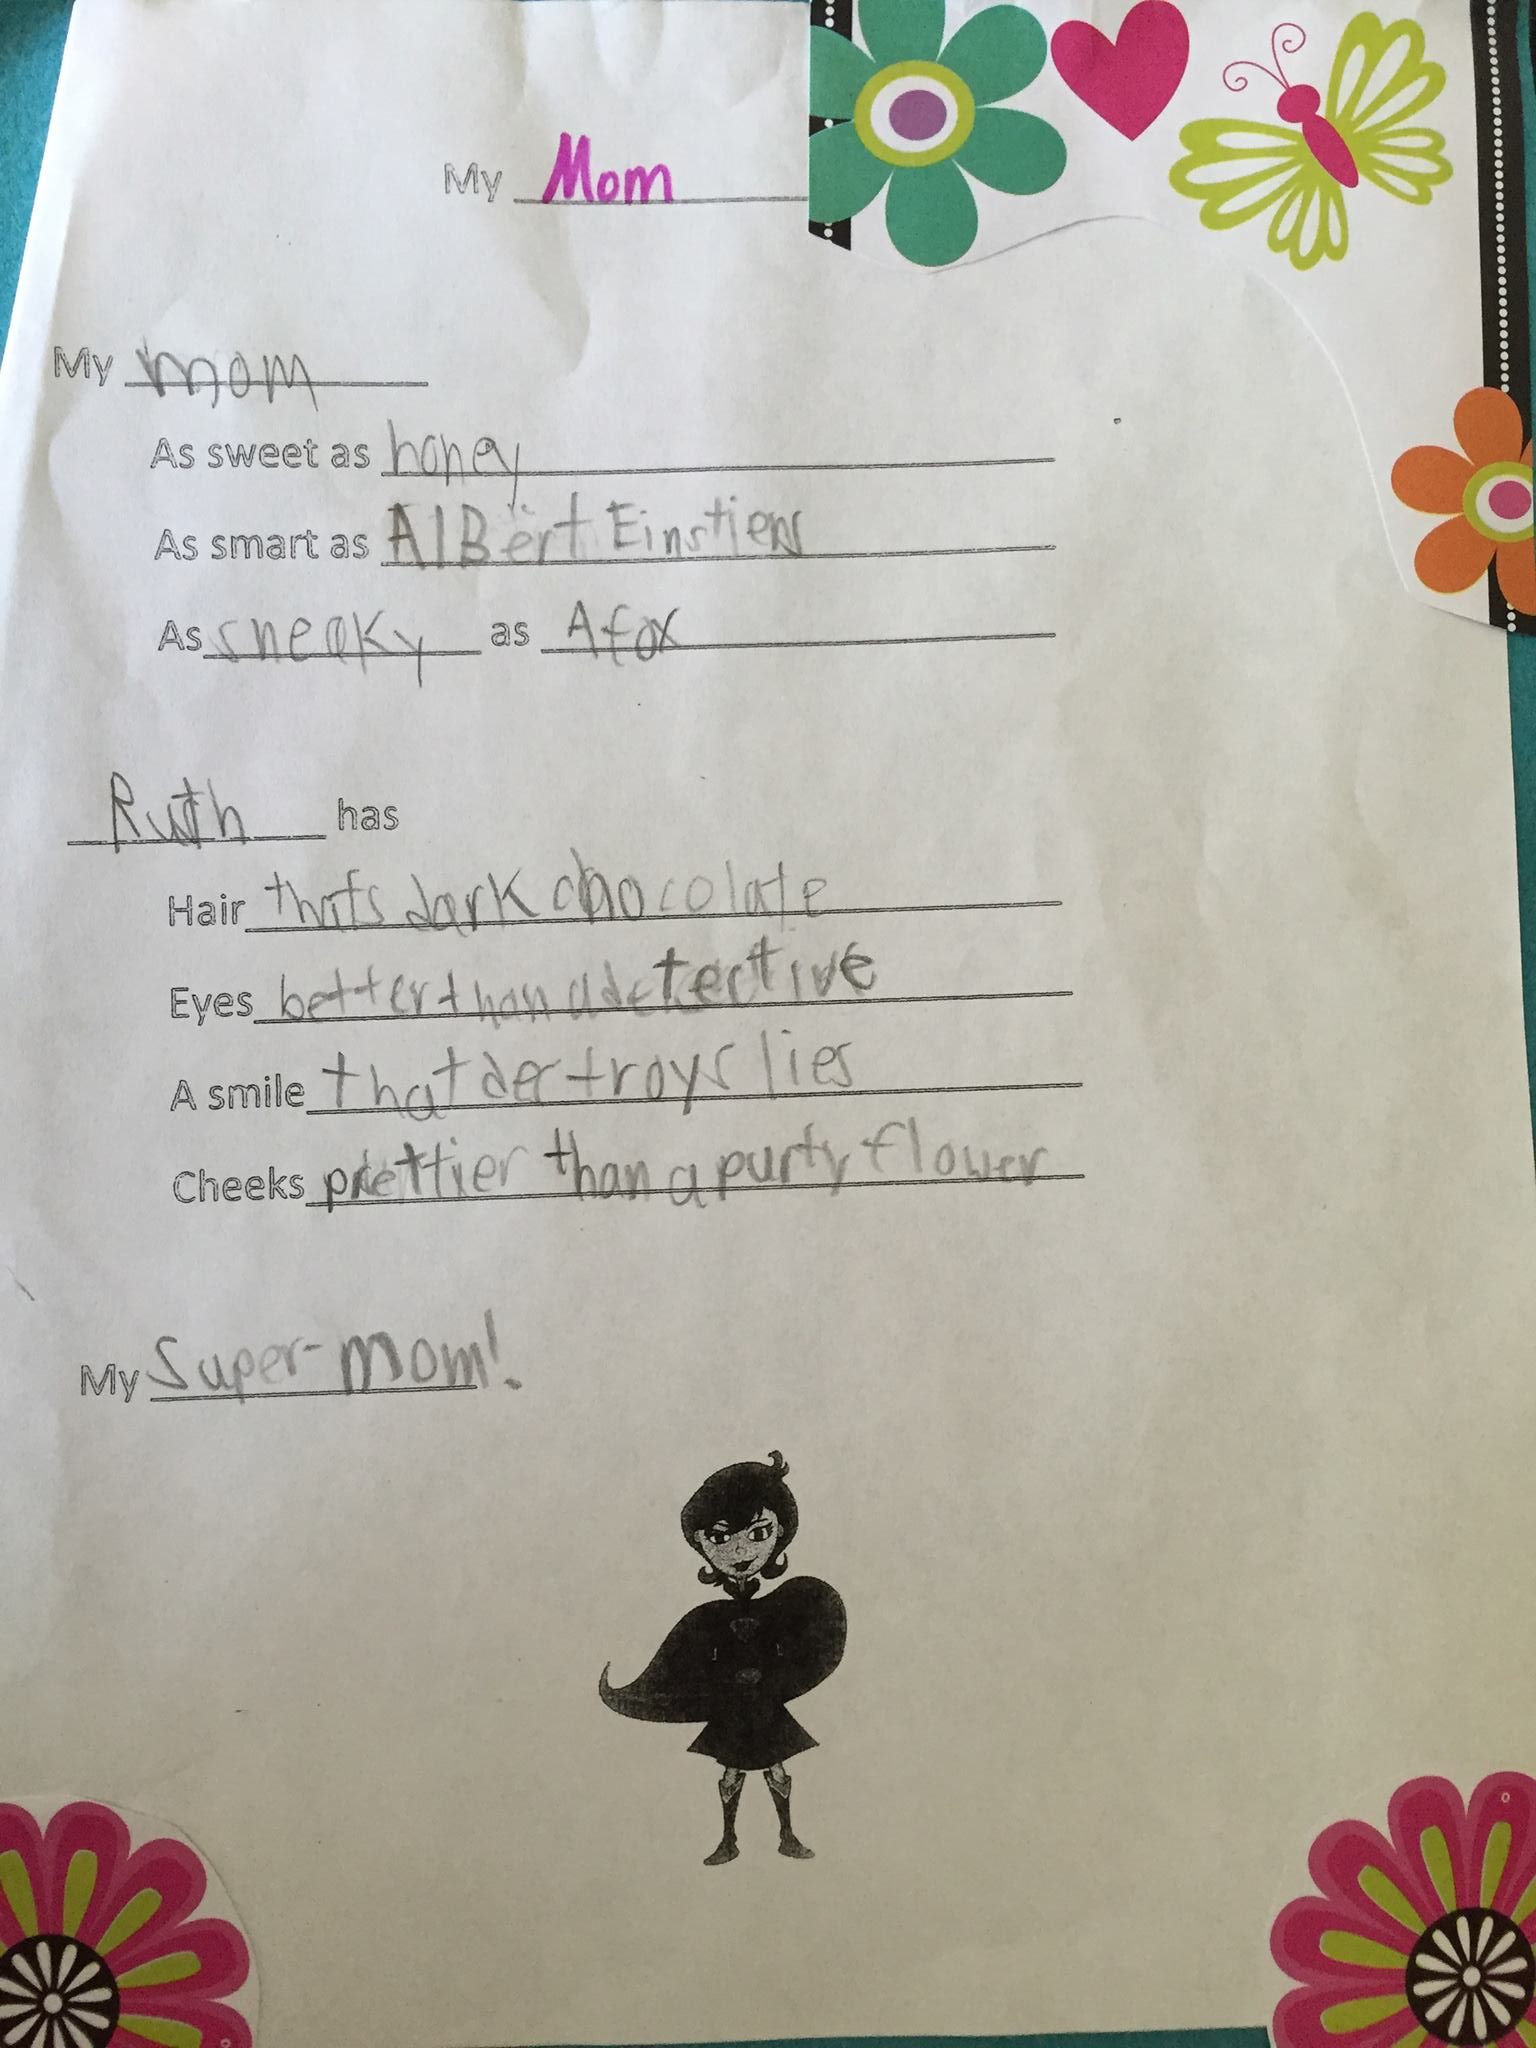 My Mom
My mom
As sweet as honey
As smart as AlBert Einstiens
As sneaky as A fox
Ruth has
Hair thats dark chocolate
Eyes better than a detective
A smile that destroys lies
Cheeks prettier than a purty flower
My Super-mom!